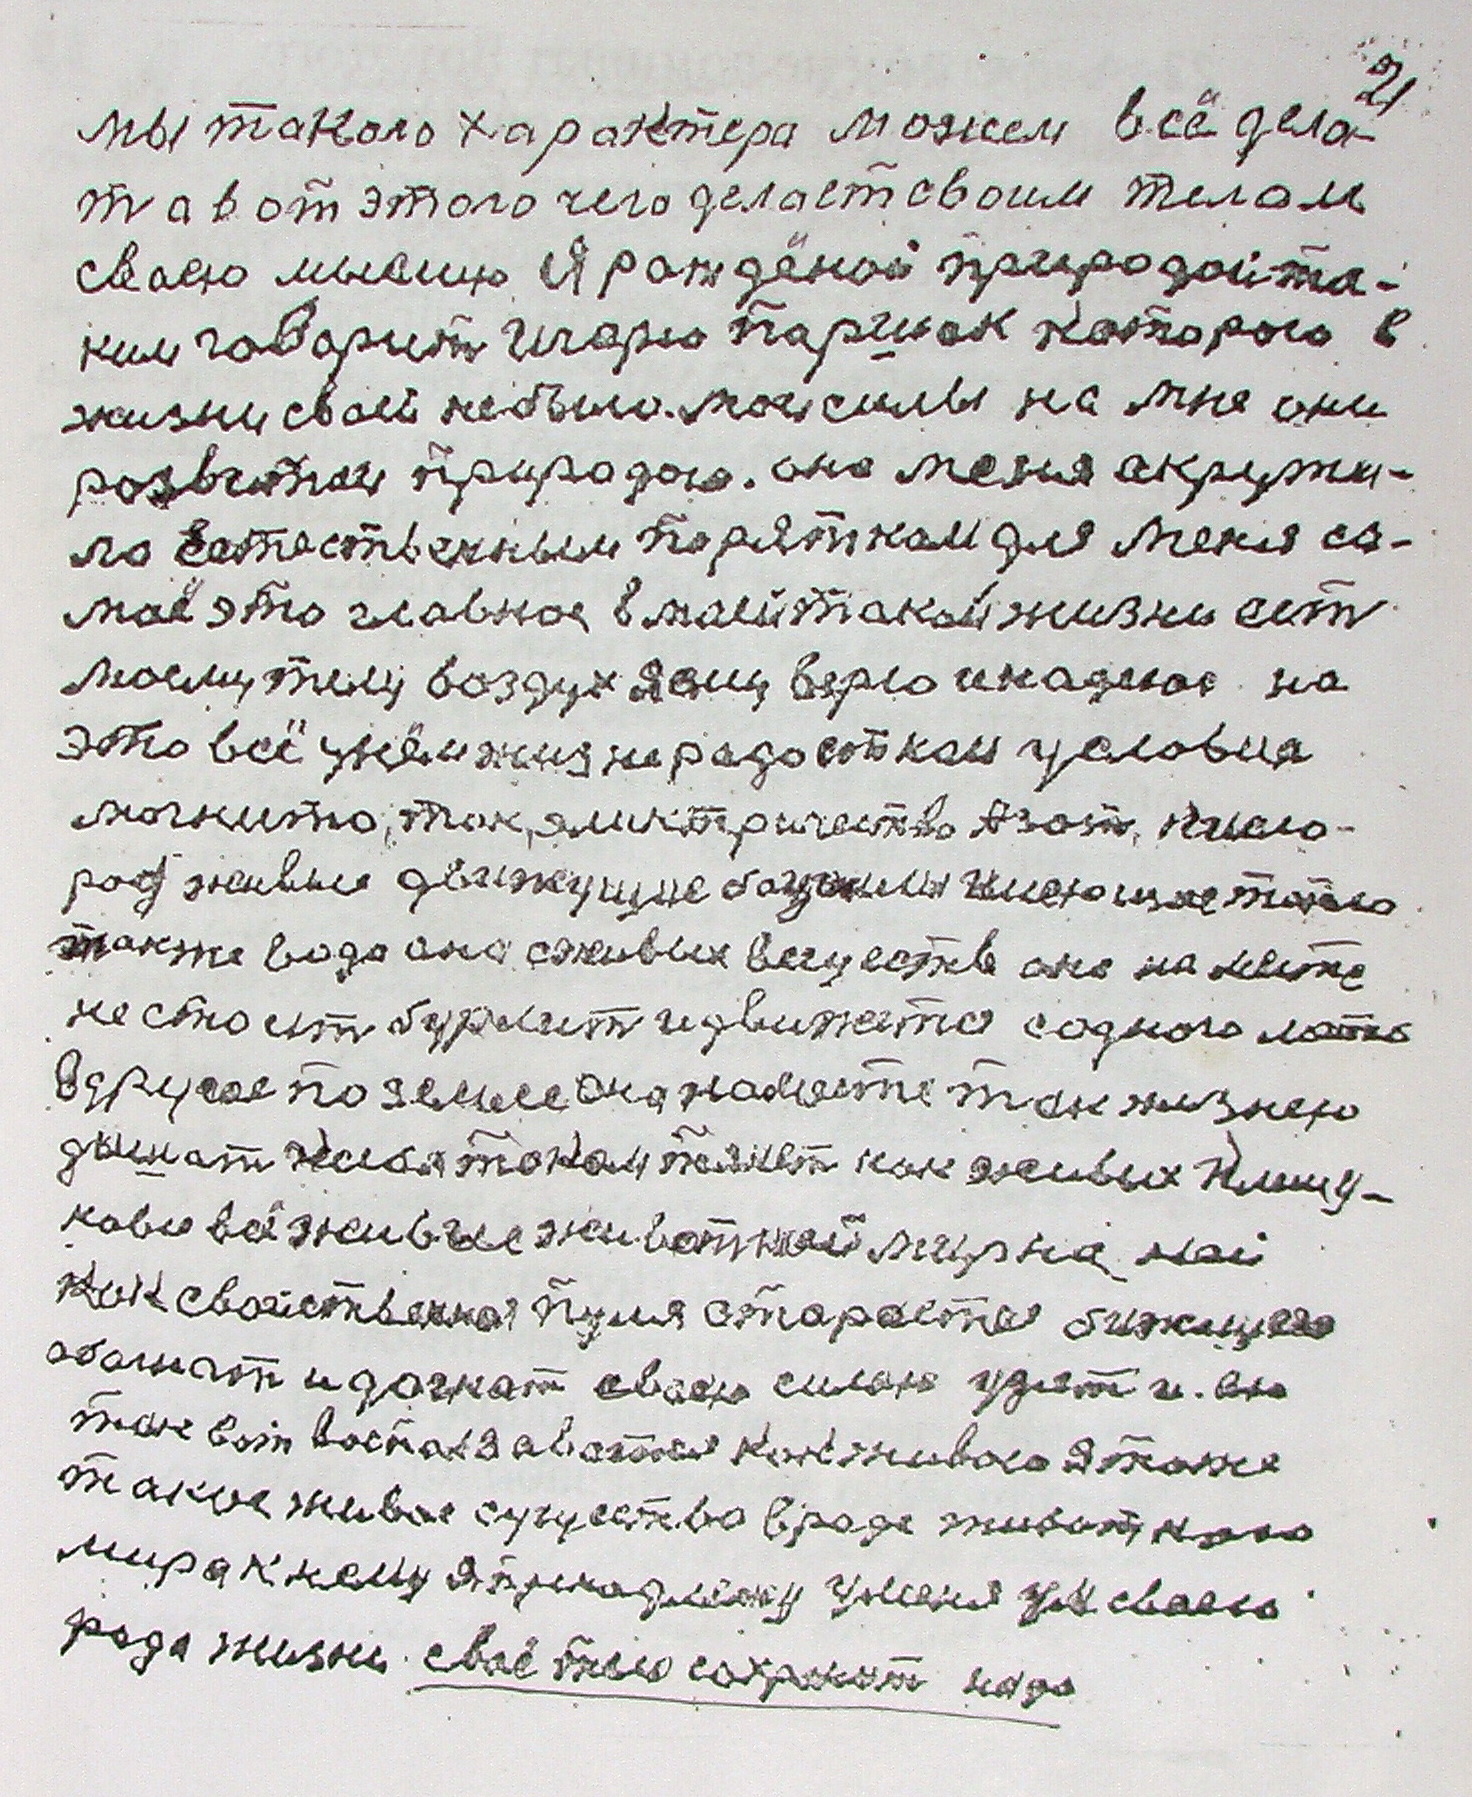 21
мы такого характера можем всё дела-
т а вот этого чего делает своим телам
сваею мыслию Я рождёной природай та-
ким говорит Игарю паршок которого в
жизни своей небыло. мои силы на мне они
розвитои природою. она меня акружи-
ла Естественным порятком для меня са-
маё это главное в маей такой жизни ест
моему телу воздух Я ему верю инадеюс на
это всё унём жизнерадосткаи условия
могнито, ток, эликтричество Азот, кисло-
род живые движущие имеющие тепло
также вода она сживых вещества она на месте
не стоит бурлит идвижится содного места
вдругое по земле она наместе так жизнею
дышат какои токам пахнет как живых
всё живые животнай мирна ней
как свойственная пуля старается бижущего
абажат и догнат сваею силаю удит и. ею
так вот воспользаватся как живого Я тоже
такое живое существо вроде животного
мира к нему Я принадлежу уменя ум своего
рода жизни. своё тело сохронит надо